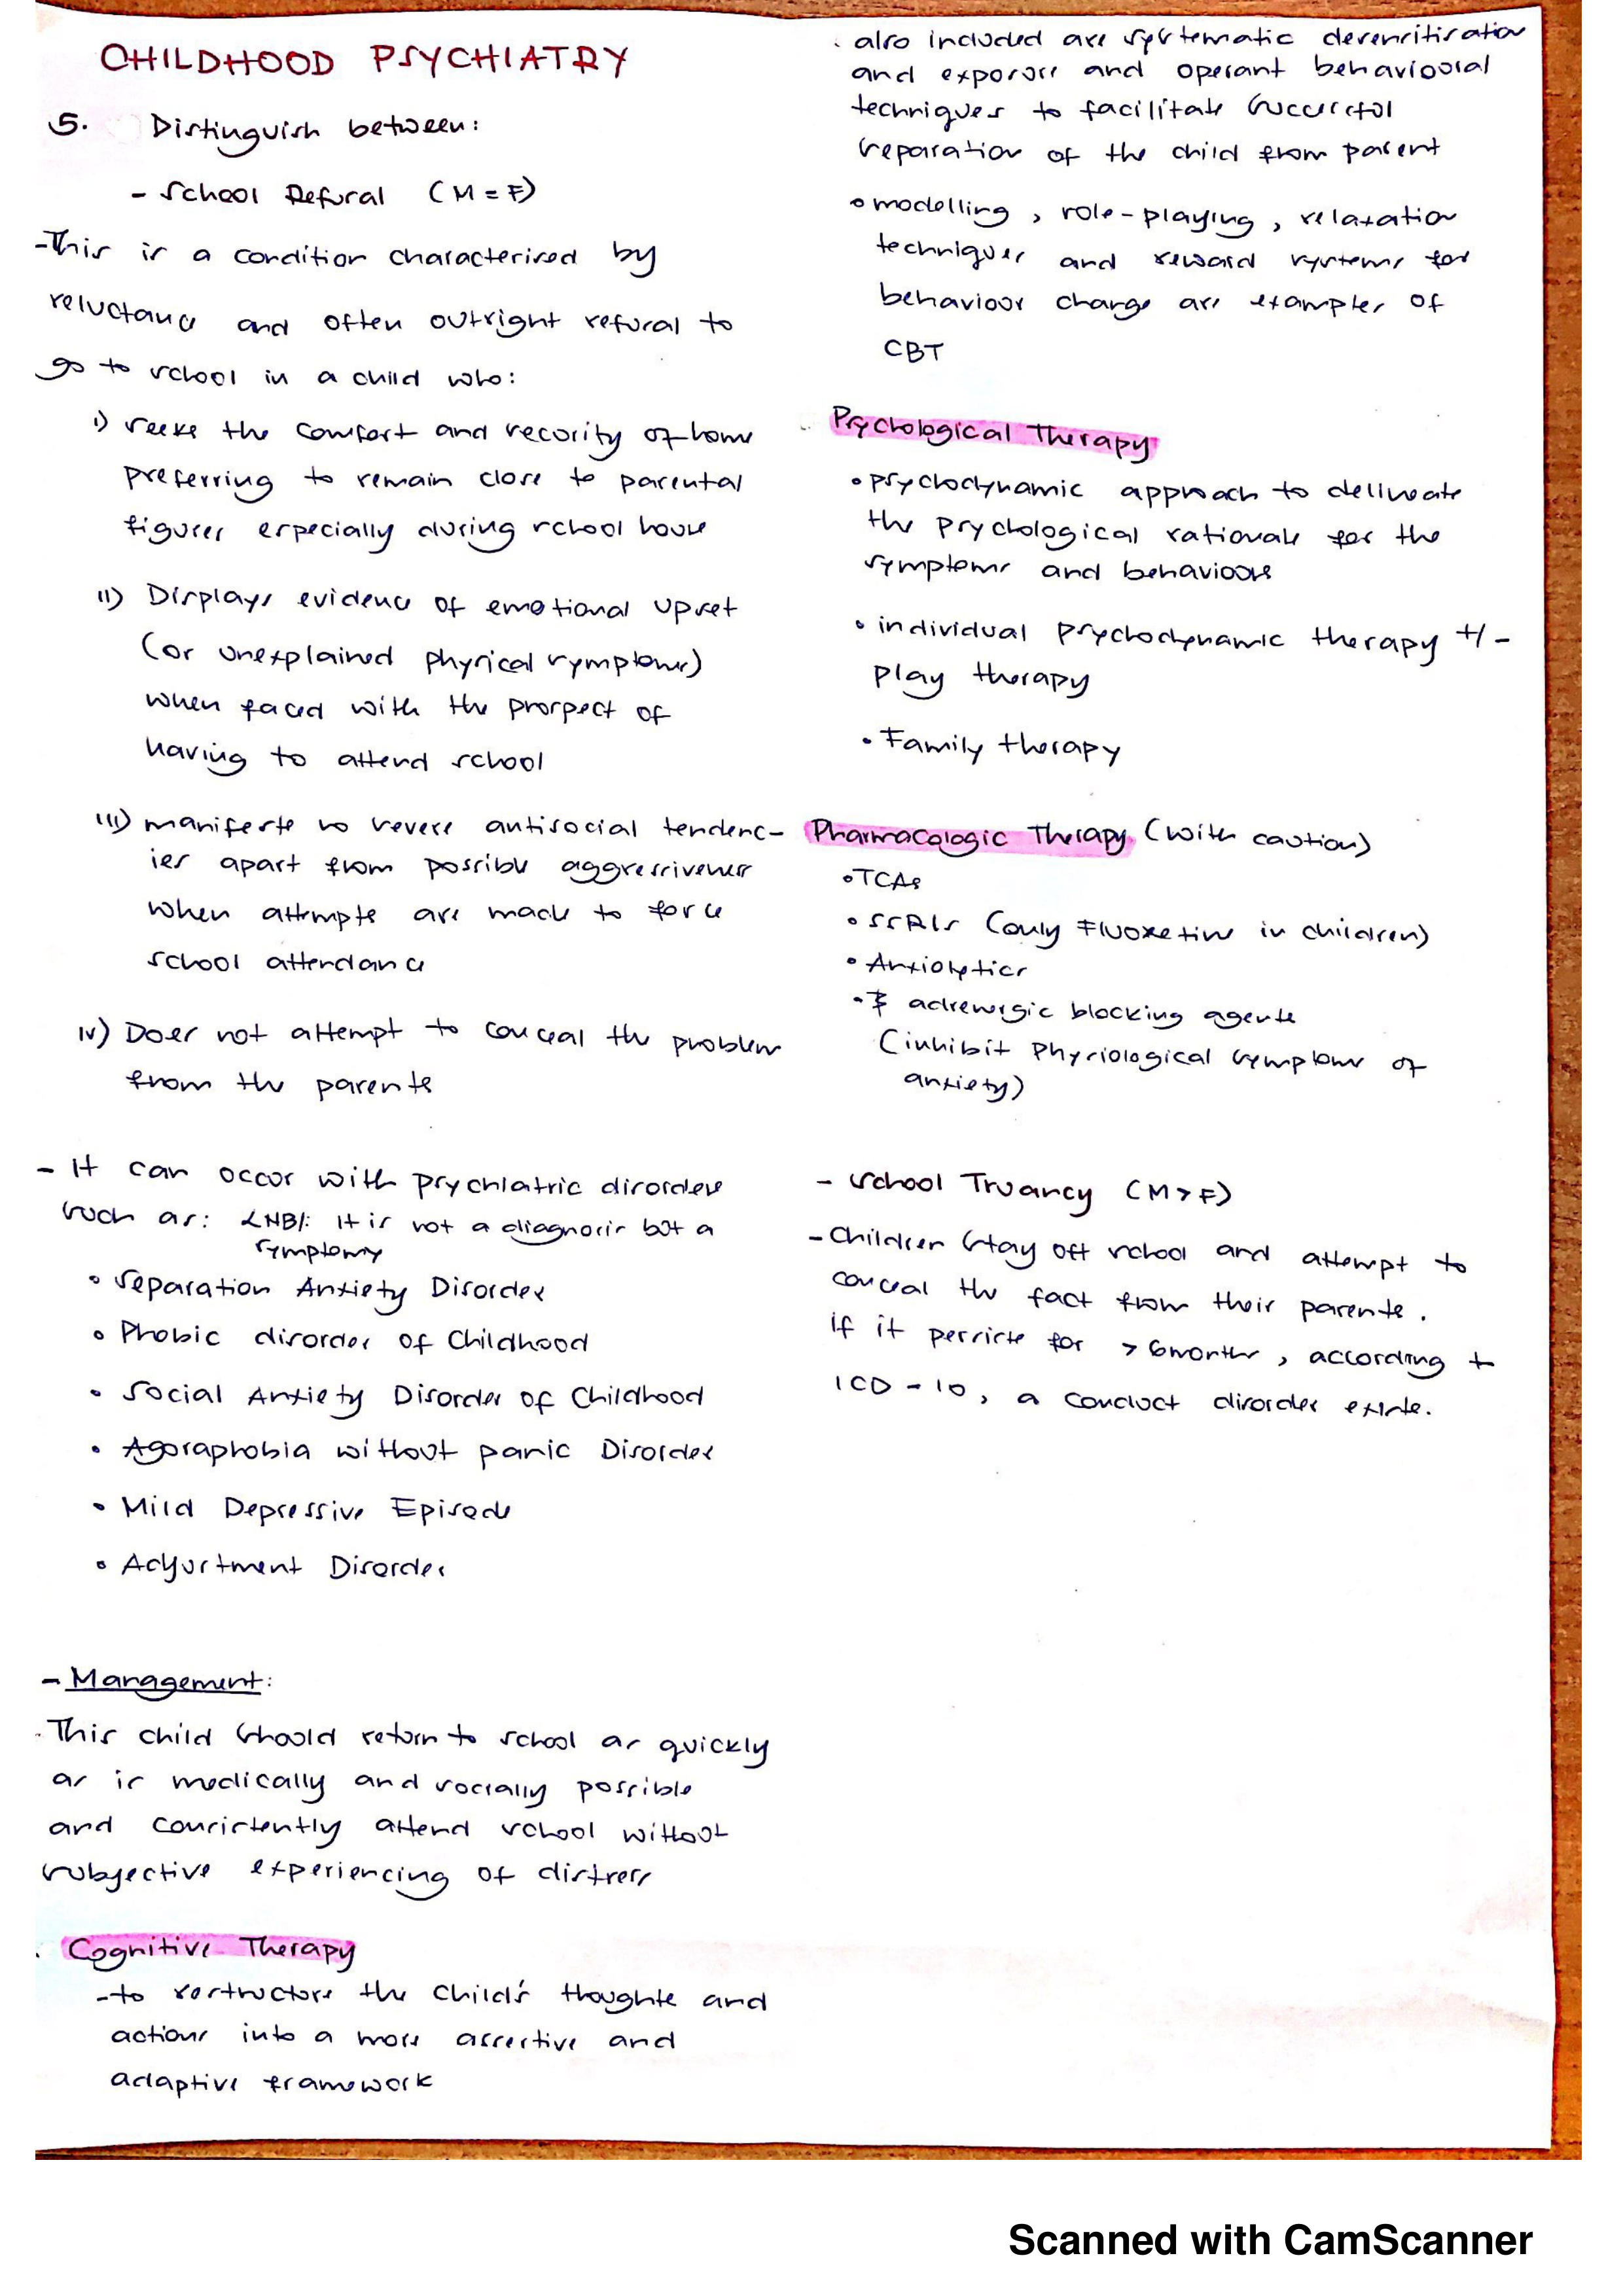 CHILDHOOD PSYCHIATRY
5. Distinguish between:
- School Refusal (M = F)
-This is a condition characterised by
reluctance and often outright refusal to
go to school in a child who:
i) seeks the comfort and security of home
preferring to remain close to parental
figures especially during school hours
ii) Displays evidence of emotional upset
(or unexplained physical symptoms)
when faced with the prospect of
having to attend school
iii) manifests no severe antisocial tendenc-
ies apart from possible aggressiveness
when attempts are made to force
school attendance
iv) Does not attempt to conceal the problem
from the parents
- It can occur with psychiatric disorders
such as: <NB/: It is not a diagnosis but a
symptom>
• Separation Anxiety Disorder
• Phobic disorder of Childhood
• Social Anxiety Disorder of Childhood
• Agoraphobia without panic Disorder
• Mild Depressive Episode
• Adjustment Disorder
- Management:
. This child should return to school as quickly
as is medically and socially possible
and consistently attend school without
subjective experiencing of distress
. Cognitive Therapy
-to restructure the child's thoughts and
actions into a more assertive and
adaptive framework
. also included are systematic desensitisation
and exposure and operant behavioural
techniques to facilitate successful
separation of the child from parent
• modelling, role-playing, relaxation
techniques and reward systems for
behaviour change are examples of
CBT
. Psychological Therapy
• psychodynamic approach to delineate
the psychological rationale for the
symptoms and behaviours
• individual psychodynamic therapy +/-
play therapy
• Family therapy
Pharmacologic Therapy (with caution)
• TCAs
• SSRIs (only Fluoxetine in children)
• Anxiolytics
• β adrenergic blocking agents
(inhibit physiological symptoms of
anxiety)
- School Truancy (M > F)
- Children stay off school and attempt to
conceal the fact from their parents.
if it persists for > 6months, according to
ICD-10, a conduct disorder exists.
Scanned with CamScanner